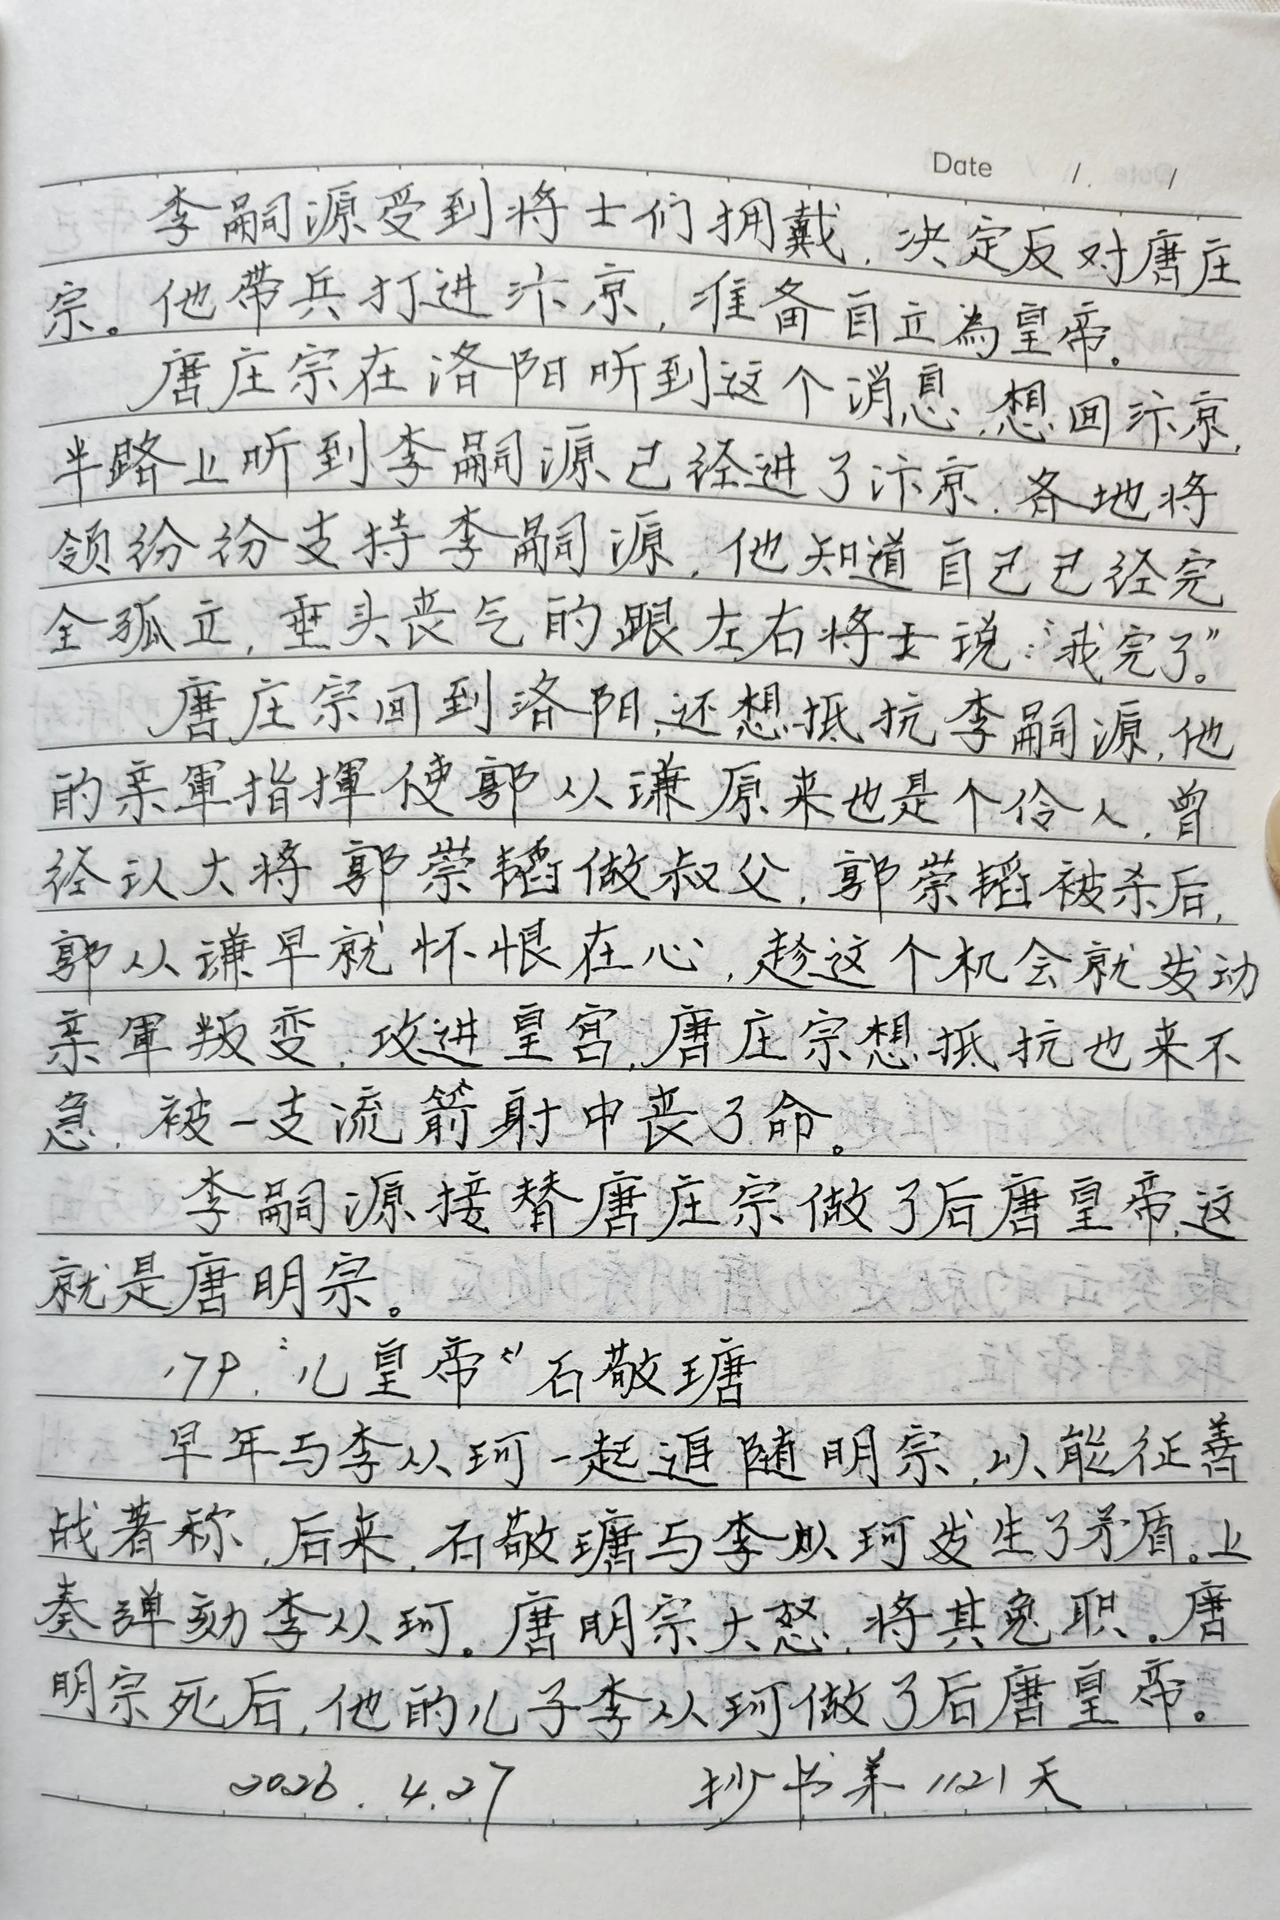 Date / /
李嗣源受到将士们拥戴,决定反对唐庄
宗。他带兵打进汴京,准备自立為皇帝。
唐庄宗在洛阳听到这个消息,想回汴京,
半路上听到李嗣源已经进了汴京,各地将
领纷纷支持李嗣源,他知道自己已经完
全孤立,垂头丧气的跟左右将士说:“我完了”。
唐庄宗回到洛阳,还想抵抗李嗣源,他
的亲軍指揮使郭从谦原来也是个伶人,曾
经认大将郭崇韬做叔父,郭崇韬被杀后,
郭从谦早就怀恨在心,趁这个机会就发动
亲軍叛变,攻进皇宫,唐庄宗想抵抗也来不
急,被一支流箭射中丧了命。
李嗣源接替唐庄宗做了后唐皇帝,这
就是唐明宗。
179.“儿皇帝”石敬瑭
早年与李从珂一起追随明宗,以能征善
战著称,后来,石敬瑭与李从珂发生了矛盾。上
奏弹劾李从珂。唐明宗大怒,将其免职。唐
明宗死后,他的儿子李从珂做了后唐皇帝。
2026.4.27 抄书第1121天